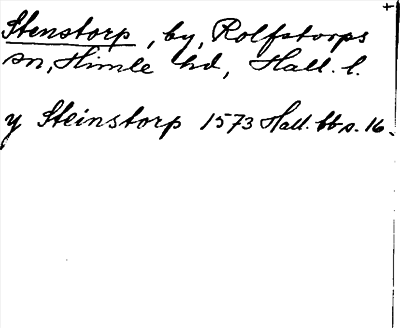 Stenstorp, by, Rolfstorps
sn, Himle hd, Hall. l.
y Steinstorp 1573 Hall. bb s. 16.